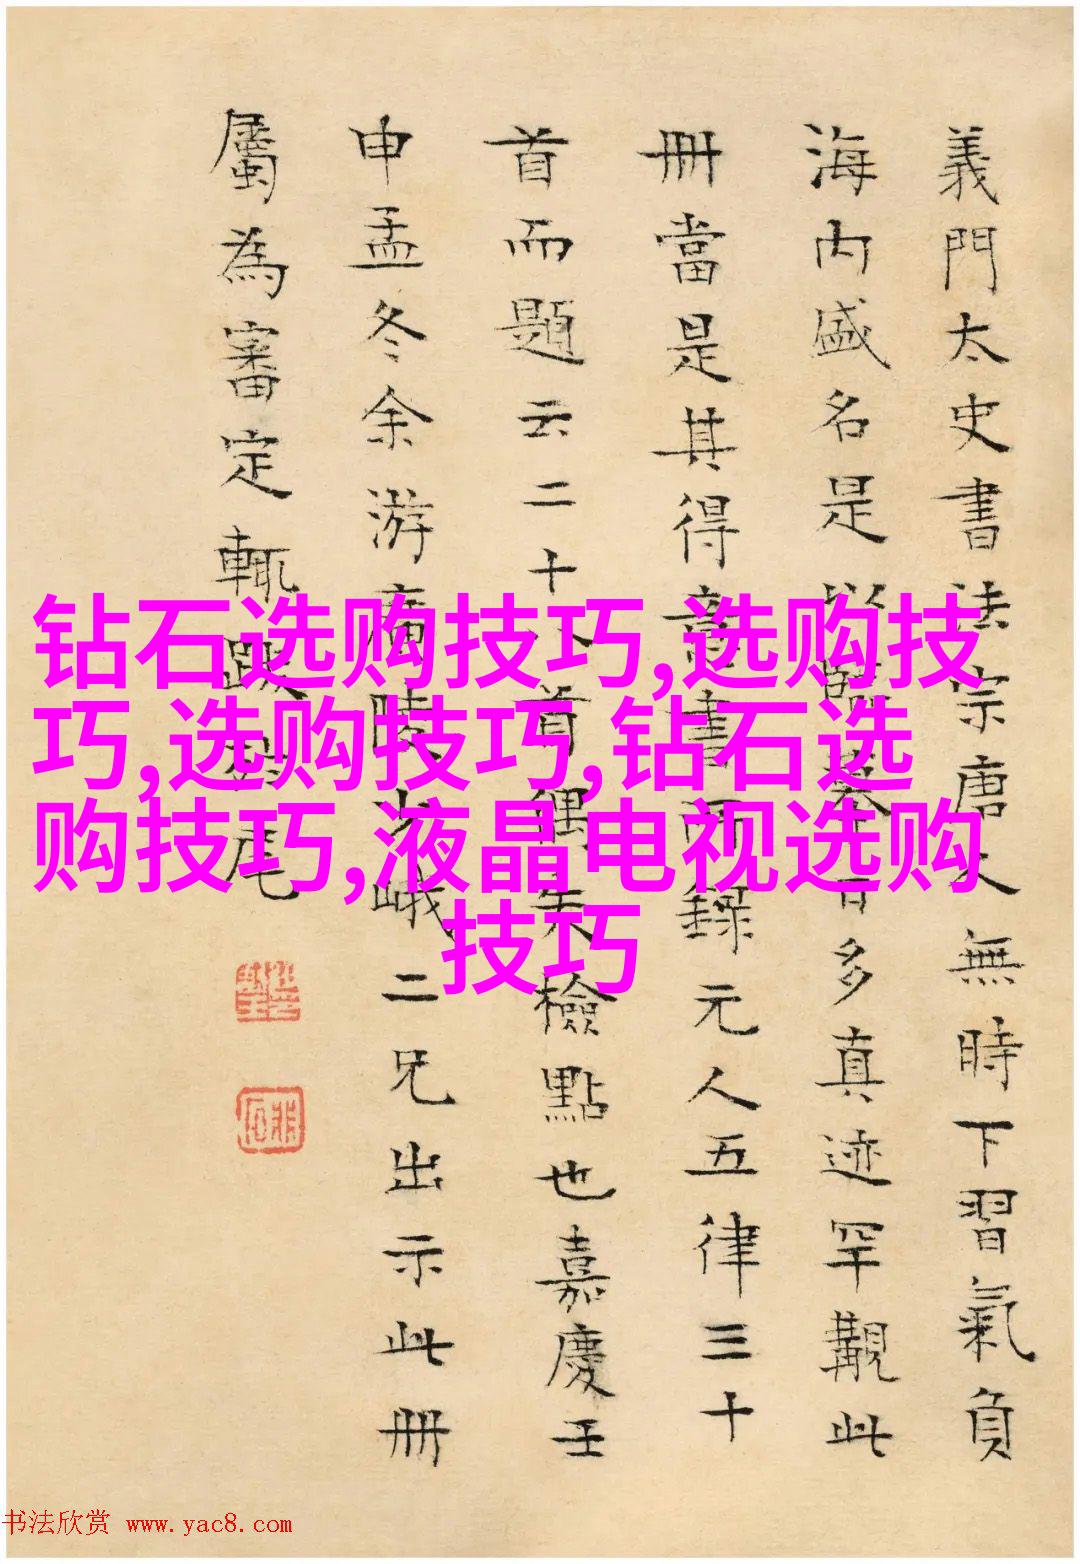 義門太史書法宗唐人無時下習氣負
海内盛名是以臨摹者多真迹罕覯此
冊當是其得意書所錄元人五律三十
首而題云二十八首偶失檢點也嘉慶壬
申孟冬余游廣陵少峨二兄出示此冊
屬為審定輒跋尾
钻石选购技巧,选购技
巧,选购技巧,钻石选
购技巧,液晶电视选购
技巧
书法欣赏 www.yac8.com